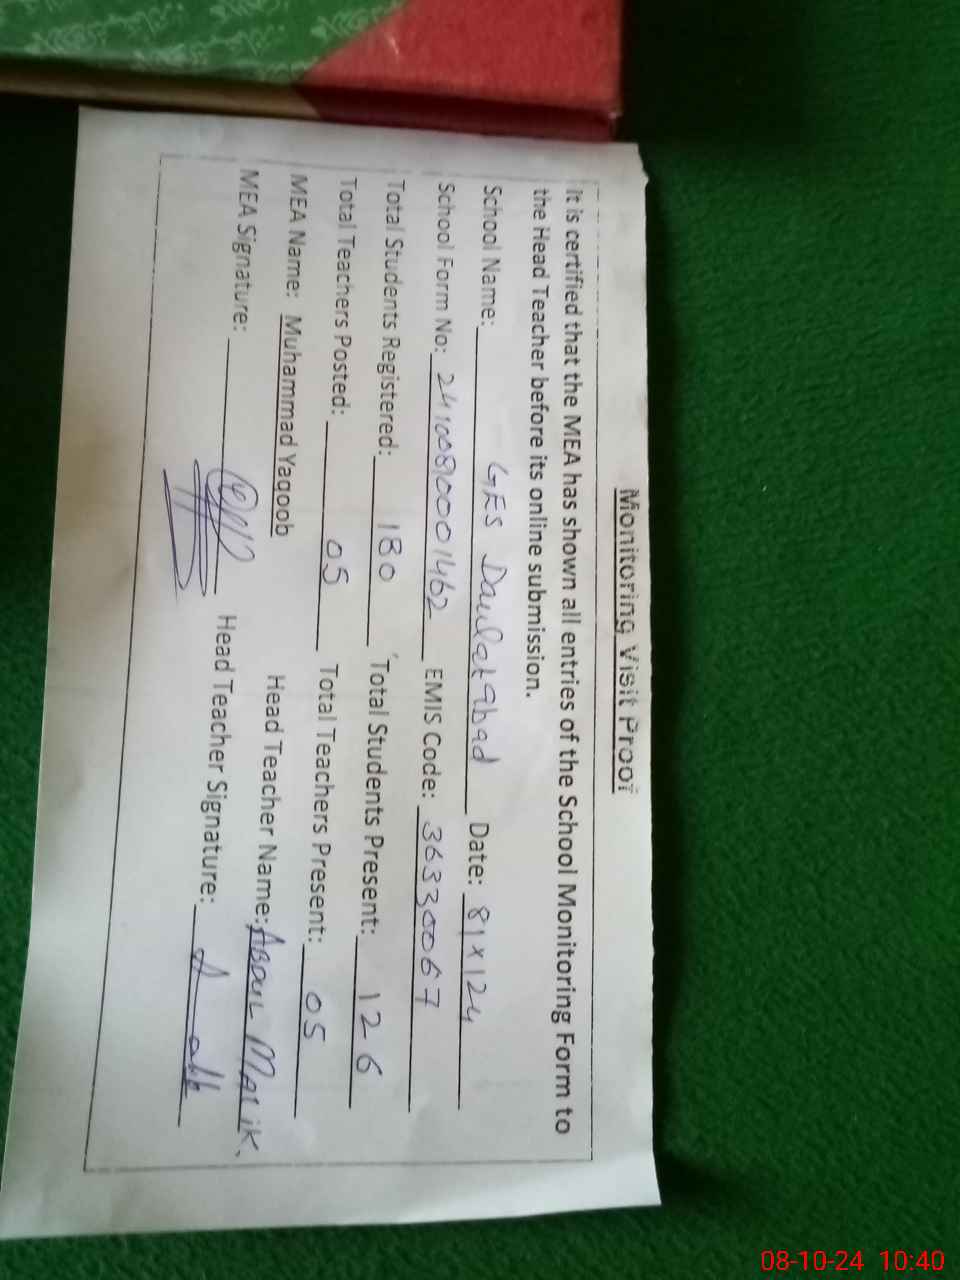 Monitoring Visit Proof
It is certified that the MEA has shown all entries of the School Monitoring Form to
the Head Teacher before its online submission.
School Name: GES Daulatabad Date: 8/X/24
School Form No: 24100810001462 EMIS Code: 36330067
Total Students Registered: 180 Total Students Present: 126
Total Teachers Posted: 05 Total Teachers Present: 05
MEA Name: Muhammad Yaqoob Head Teacher Name: ABDUL MALIK.
MEA Signature: Head Teacher Signature:
08-10-24 10:40